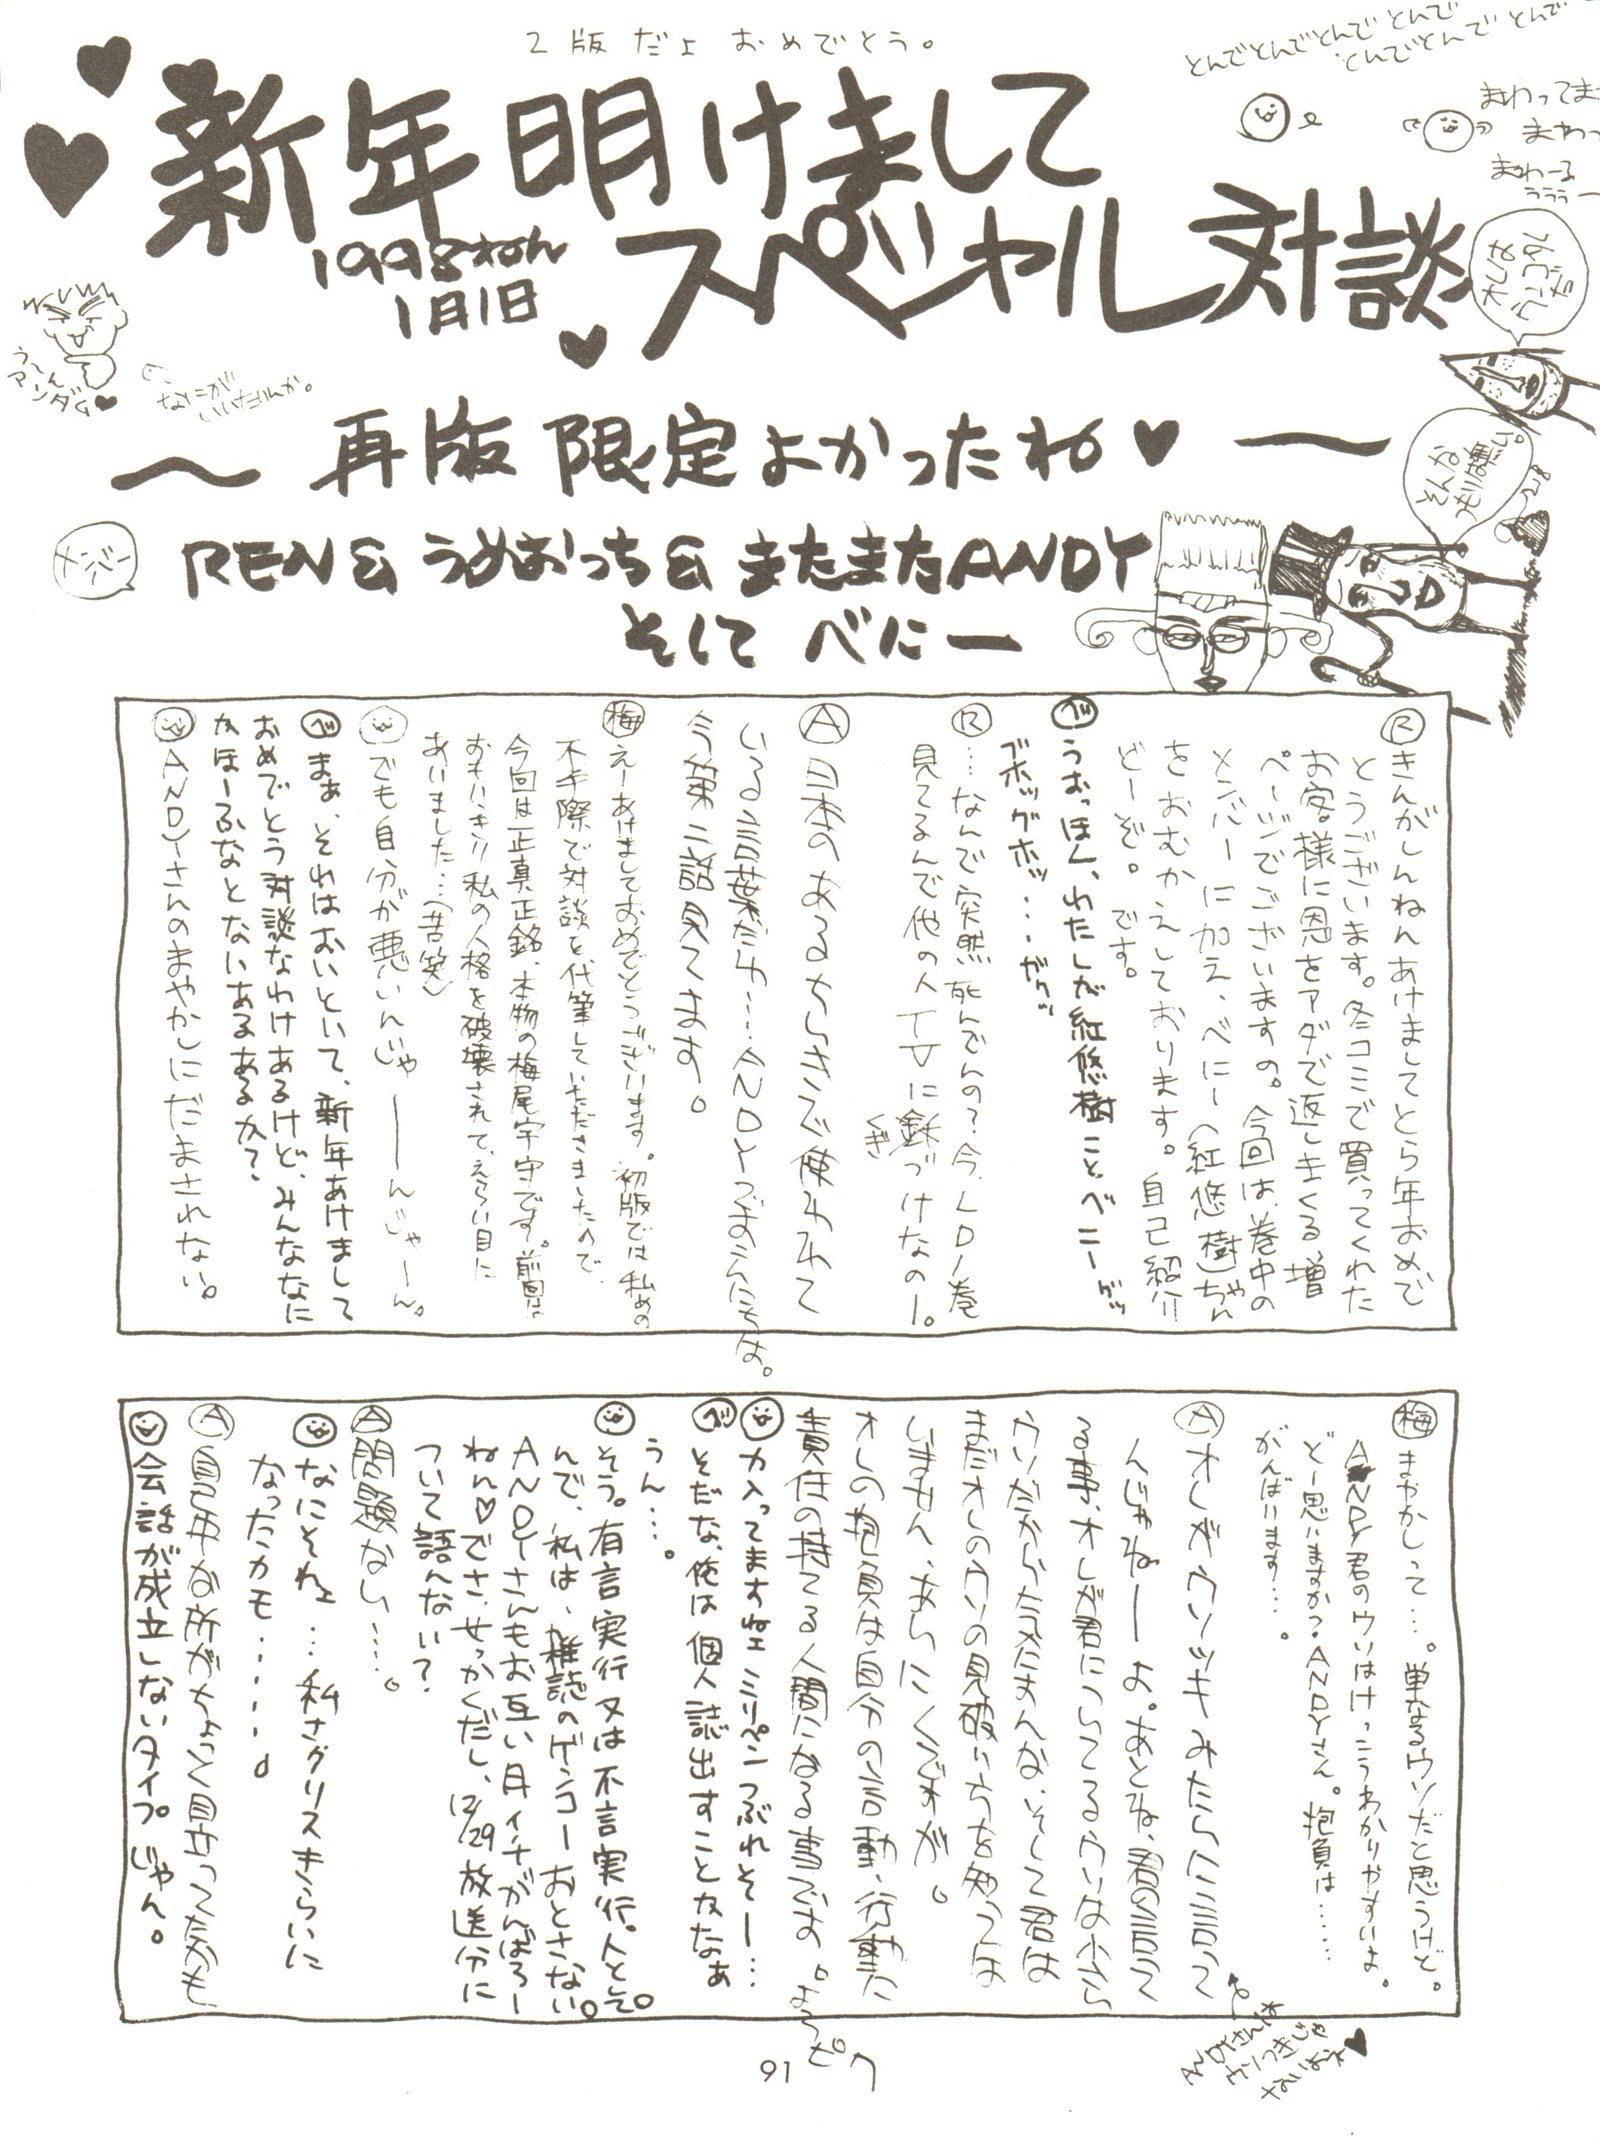 2版だよ おめでとう。
とんでとんでとんでとんで
とんでとんでとんで
まわってま
まわっ
まわーる
ううう〜
新年明けまして
スペシャル対談
1998ねん
1月1日
う〜ん
アンダム♥
なにが
いいだんか。
〜再版限定よかったね♥〜
そんな
つもりは無い。
メンバー
REN& うめおっち& またまたANDY
そして べにー
Ⓡきんがしんねんあけましてとら年おめで
とうございます。冬コミで買ってくれた
お客様に恩をアダで返しまくる増
ページでございますの。今回は、巻中の
メンバーに加え、べにー(紅悠樹)ちゃん
をおむかえしております。自己紹介
どーぞ。です。
べうおっほん、わたしが紅悠樹ことべニーゲッ
ゴホッグホッ…ガクッ
Ⓡ…なんで突然死んでんの?今、LD1巻
見てるんで他の人TVに釘づけなのー。
くぎ
Ⓐ日本のあるちいきで使われて
いる言葉だわ…ANDYでまえにちは。
今第二話見てます。
梅えーあけましておめでとうございます。初版では私めの
不手際で対談を、代筆していただきましたので、
今回は正真正銘、本物の梅尾宇宙です。前回は
おもいっきり私の人格を破壊されて、えらい目に
あいました…(苦笑)
でも自分が悪いんじゃーーんじゃーん。
べまぁ、それはおいといて、新年あけまして
おめでとう対談なわけあるけど、みんななに
かほーふなとないあるあるか?
ANDYさんのまやかしにだまされない。
梅まやかしって…。単なるウソだと思うけど。
ANDY君のウソはけっこうわかりやすいよ。
どー思いますか?ANDYさん。抱負は……
がんばります…。
Ⓐオレがウソツキみたいに言って
んじゃねーーよ。あとね、君の言って
る事、オレが君にいってるウソは少々
ウソだからたまたまんな、そして君は
まだオレのウソの見破いうちを知っては
いません、あらにくですが。
オレの抱負は自分の言動・行動に
責任の持てる人間になる事でよ。よろピク
力入ってますねェミリペンつぶれそー…
べそだな、俺は個人誌出すことかなぁ
うん…。
そう。有言実行又は不言実行。人として。
んで、私は、雑誌のゲンコーおとさない。
ANDYさんもお互い月イチがんばろー
ねん♡でさ、せっかくだし、12/29放送分に
ついて語んない?
Ⓐ問題ない…。
なにそれェ…私さグリスきらいに
なったカモ……
Ⓐ自己中な所がちょっと目立ってたかも
会話が成立しないタイプじゃん。
ANDYさんは
ウソつきじゃ
ないよね♥
91